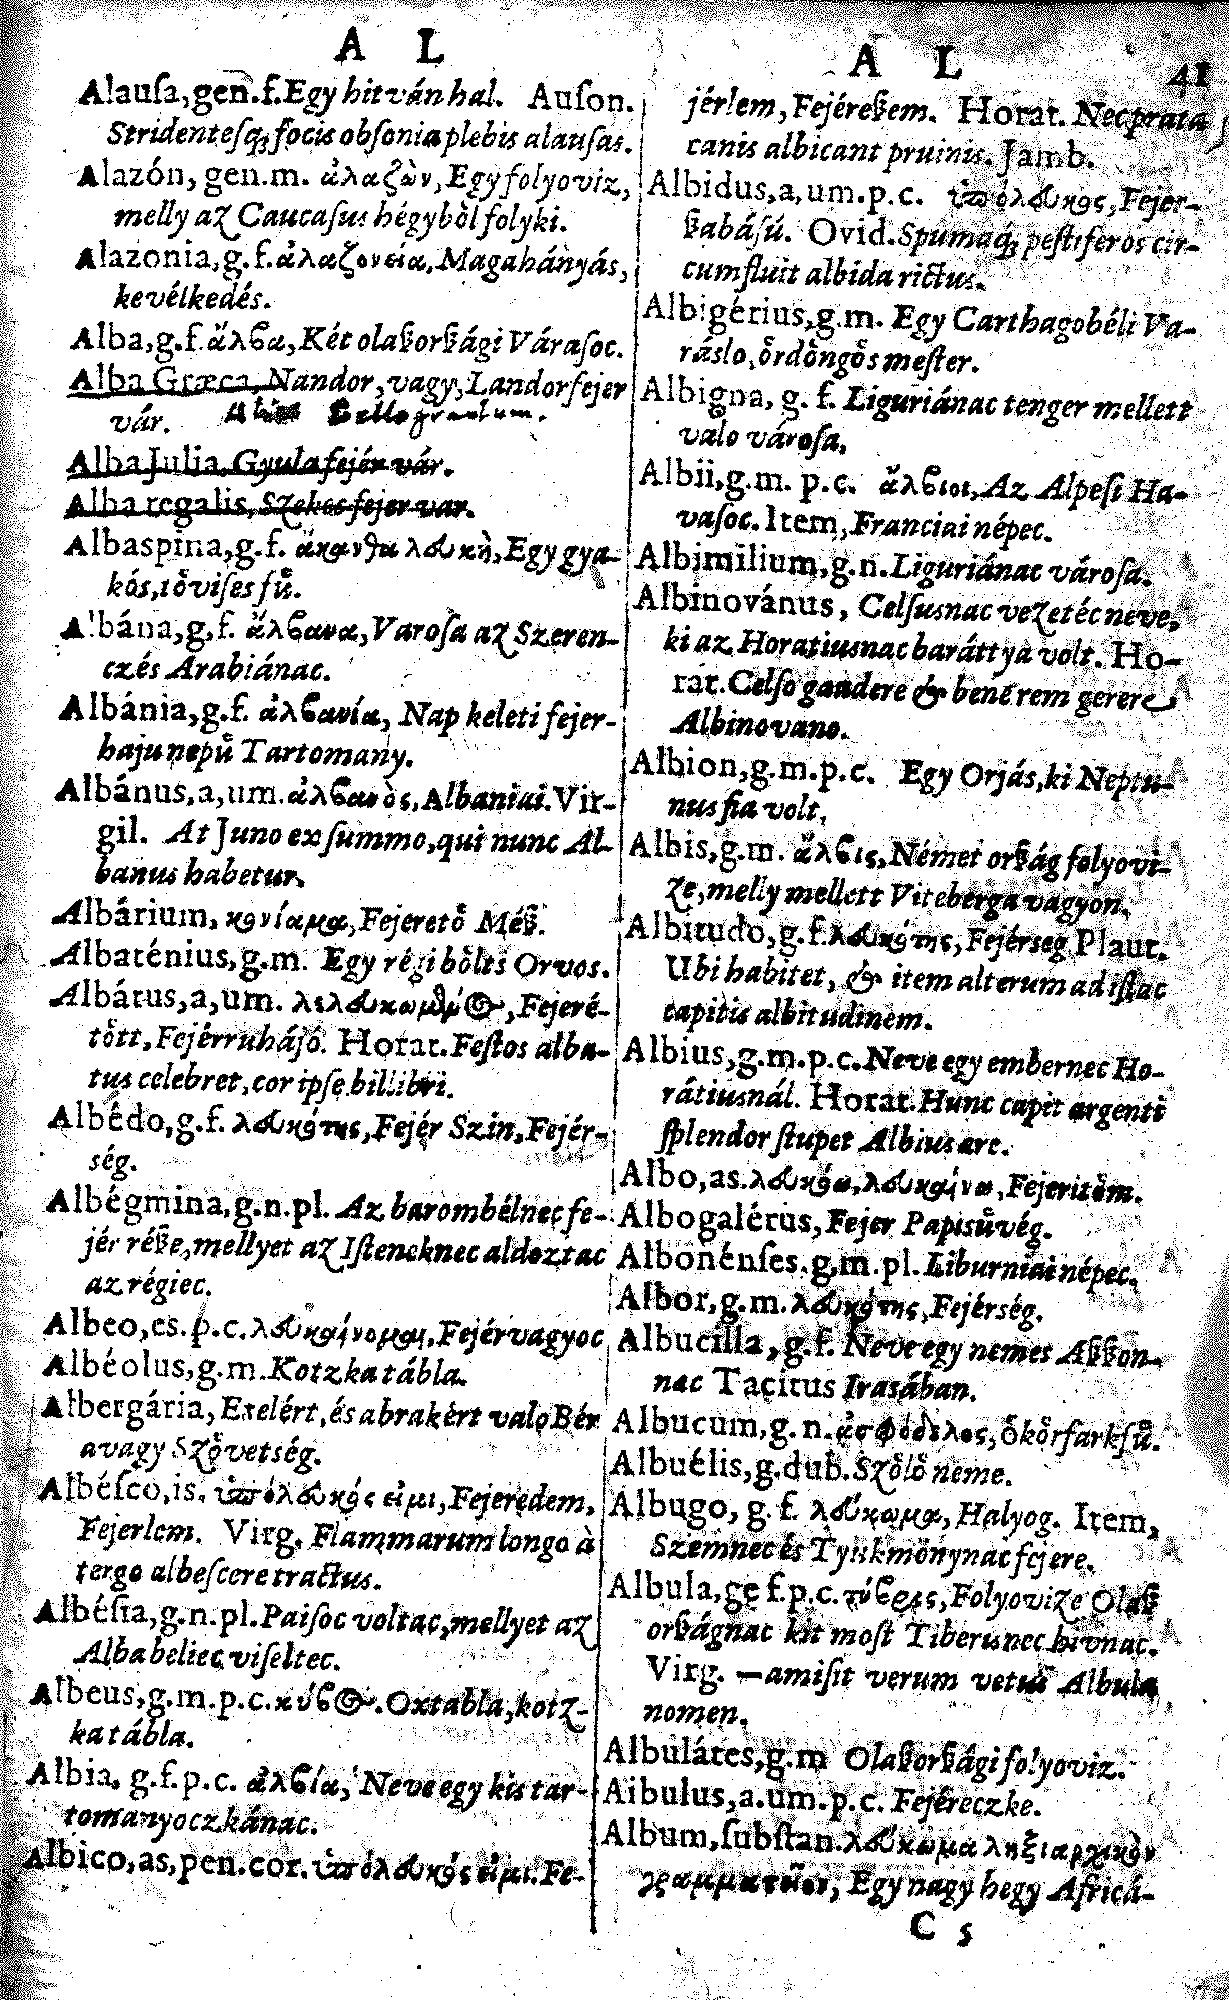 A L
Alauſa, gen. f. Egy hitván hal. Auſon.
Stridentesq́; focis obſonia plebis alauſas.
Alazón, gen. m. ἀλαζὼν, Egy folyoviz,
melly az Caucaſus hégyből folyki.
Alazonia, g. f. ἀλαζονεία, Magahányás,
kevélkedés.
Alba, g. f. ἄλβα, Két olaßorßági Városoc.
Alba Græca, Nandor, vagy, Landorfejer
vár.
Alba Julia. Gyulafejér vár.
Alba regalis, Szekes fejer var.
Albaspina, g. f. ἄκανθα λευκὴ, Egy gya-
kós, tövises fű.
Albána, g. f. ἄλβανα, Varoſa az Szeren-
czés Arabiánac.
Albánia, g. f. ἀλβανία, Nap keleti fejer-
haju nepű Tartomany.
Albánus, a, um. ἀλβανὸς, Albaniai. Vir-
gil. At Juno ex ſummo, qui nunc Al-
banus habetur.
Albárium, κονίαμα, Fejerető Méß.
Albaténius, g. m. Egy régi bölts Orvos.
Albátus, a, um. λελευκωμένος, Fejeré-
tött, Fejérruhájó. Horat. Feſtos alba-
tus celebret, cor ipſe bilibri.
Albédo, g. f. λευκότης, Fejér Szin, Fejér-
ség.
Albégmina, g. n. pl. Az barombélnec fe-
jér réße, mellyet az Iſteneknec aldoztac
az régiec.
Albeo, es. p. c. λευκαίνομαι, Fejérvagyoc
Albéolus, g. m. Kotzka tábla.
Albergária, Etelért, és abrakért valo Bér
avagy Szövetség.
Albéſco, is. ὑπόλευκός εἰμι, Fejeredem,
Fejerlem. Virg. Flammarum longo à
tergo albeſcere tractus.
Albéſia, g. n. pl. Paiſoc voltac, mellyet az
Albabeliec viſeltec.
Albeus, g. m. p. c. κύβος. Oxtabla, kotz-
ka tábla.
Albia, g. f. p. c. ἀλβία, Neve egy kis tar-
tomanyoczkánac.
Albico, as, pen. cor. ὑπόλευκός εἰμι. Fe-
A L 41
jérlem, Fejéreßem. Horat. Nec prata
canis albicant pruinis. Jamb.
Albidus, a, um. p. c. ὑπόλευκος, Fejer-
ßabású. Ovid. Spumaq́; peſtiferos cir-
cumfluit albida rictus.
Albigérius, g. m. Egy Carthagobéli Va-
ráslo, ördöngös meſter.
Albigna, g. f. Liguriánac tenger mellett
valo városa.
Albii, g. m. p. c. ἄλβιοι, Az Alpeſi Ha-
vaſoc. Item, Franciai népec.
Albimilium, g. n. Liguriánac városa.
Albinovánus, Celſusnac vezetéc neve,
ki az Horatiusnac baráttya volt. Ho-
rat. Celſo gaudere & bene rem gerere
Albinovano.
Albion, g. m. p. c. Egy Orjás, ki Neptu-
nus fia volt.
Albis, g. m. ἄλβις, Német orßág folyovi-
ze, melly mellett Viteberga vagyon.
Albitudo, g. f. λευκότης, Fejérseg Plaut.
Ubi habitet, & item alterum ad iſtac
capitis albitudinem.
Albius, g. m. p. c. Neve egy embernec Ho-
rátiusnál. Horat. Hunc capit argenti
ſplendor ſtupet Albius ære.
Albo, as. λευκόω, λευκαίνω, Fejeritöm.
Albogalérus, Fejer Papisűvég.
Albonénſes. g. m. pl. Liburniai népec.
Albor, g. m. λευκότης, Fejérség.
Albucilla, g. f. Neve egy nemes Aßßon-
nac Tacitus Irasában.
Albucum, g. n. ἀσφόδελος, ökörfarkfű.
Albuélis, g. dub. Szölö neme.
Albugo, g. f. λεύκωμα, Halyog. Item,
Szemnec és Tyukmonynac fejere.
Albula, ge f. p. c. τύβρις, Folyovize Olaß
orßágnac kit moſt Tiberisnec hivnac.
Virg. —amiſit verum vetus Albula
nomen.
Albuláres, g. m Olaßorßági folyoviz.
Aibulus, a. um. p. c. Fejéreczke.
Album, ſubſtan. λεύκωμα ληξιαρχικὸν
γραμματεῖον, Egy nagy hegy Africá-
C 5